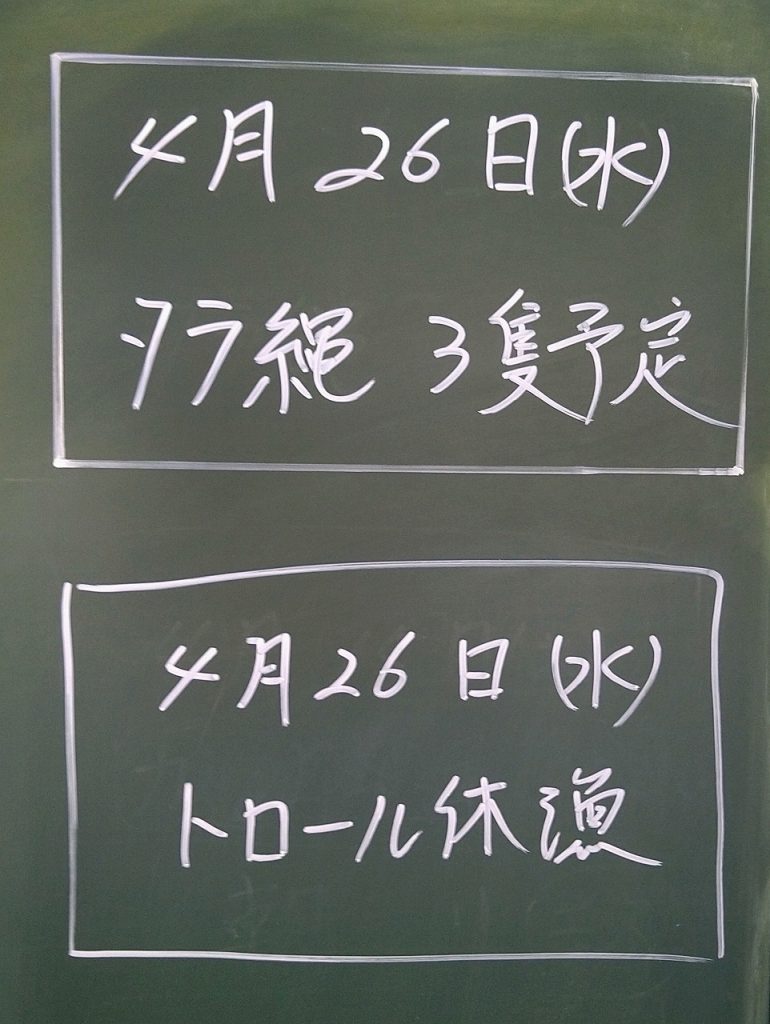 4月26日(水)
タラ縄 3隻予定
4月26日(水)
トロール休漁